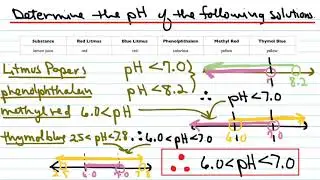 Determine the pH of the following solutions
Substance Red Litmus Blue Litmus Phenolphthalein Methyl Red Thymol Blue
lemon juice red red colorless yellow yellow
Litmus Papers pH < 7.0
7.0 8.2
phenolphthalein pH < 8.2
∴ pH < 7.0
methyl red 6.0 < pH
thymol blue 2.5 < pH < 7.8 ∴ 6.0 < pH < 7.0
6.0 7.0
2.5 6.0 7.0 7.8
∴ 6.0 < pH < 7.0